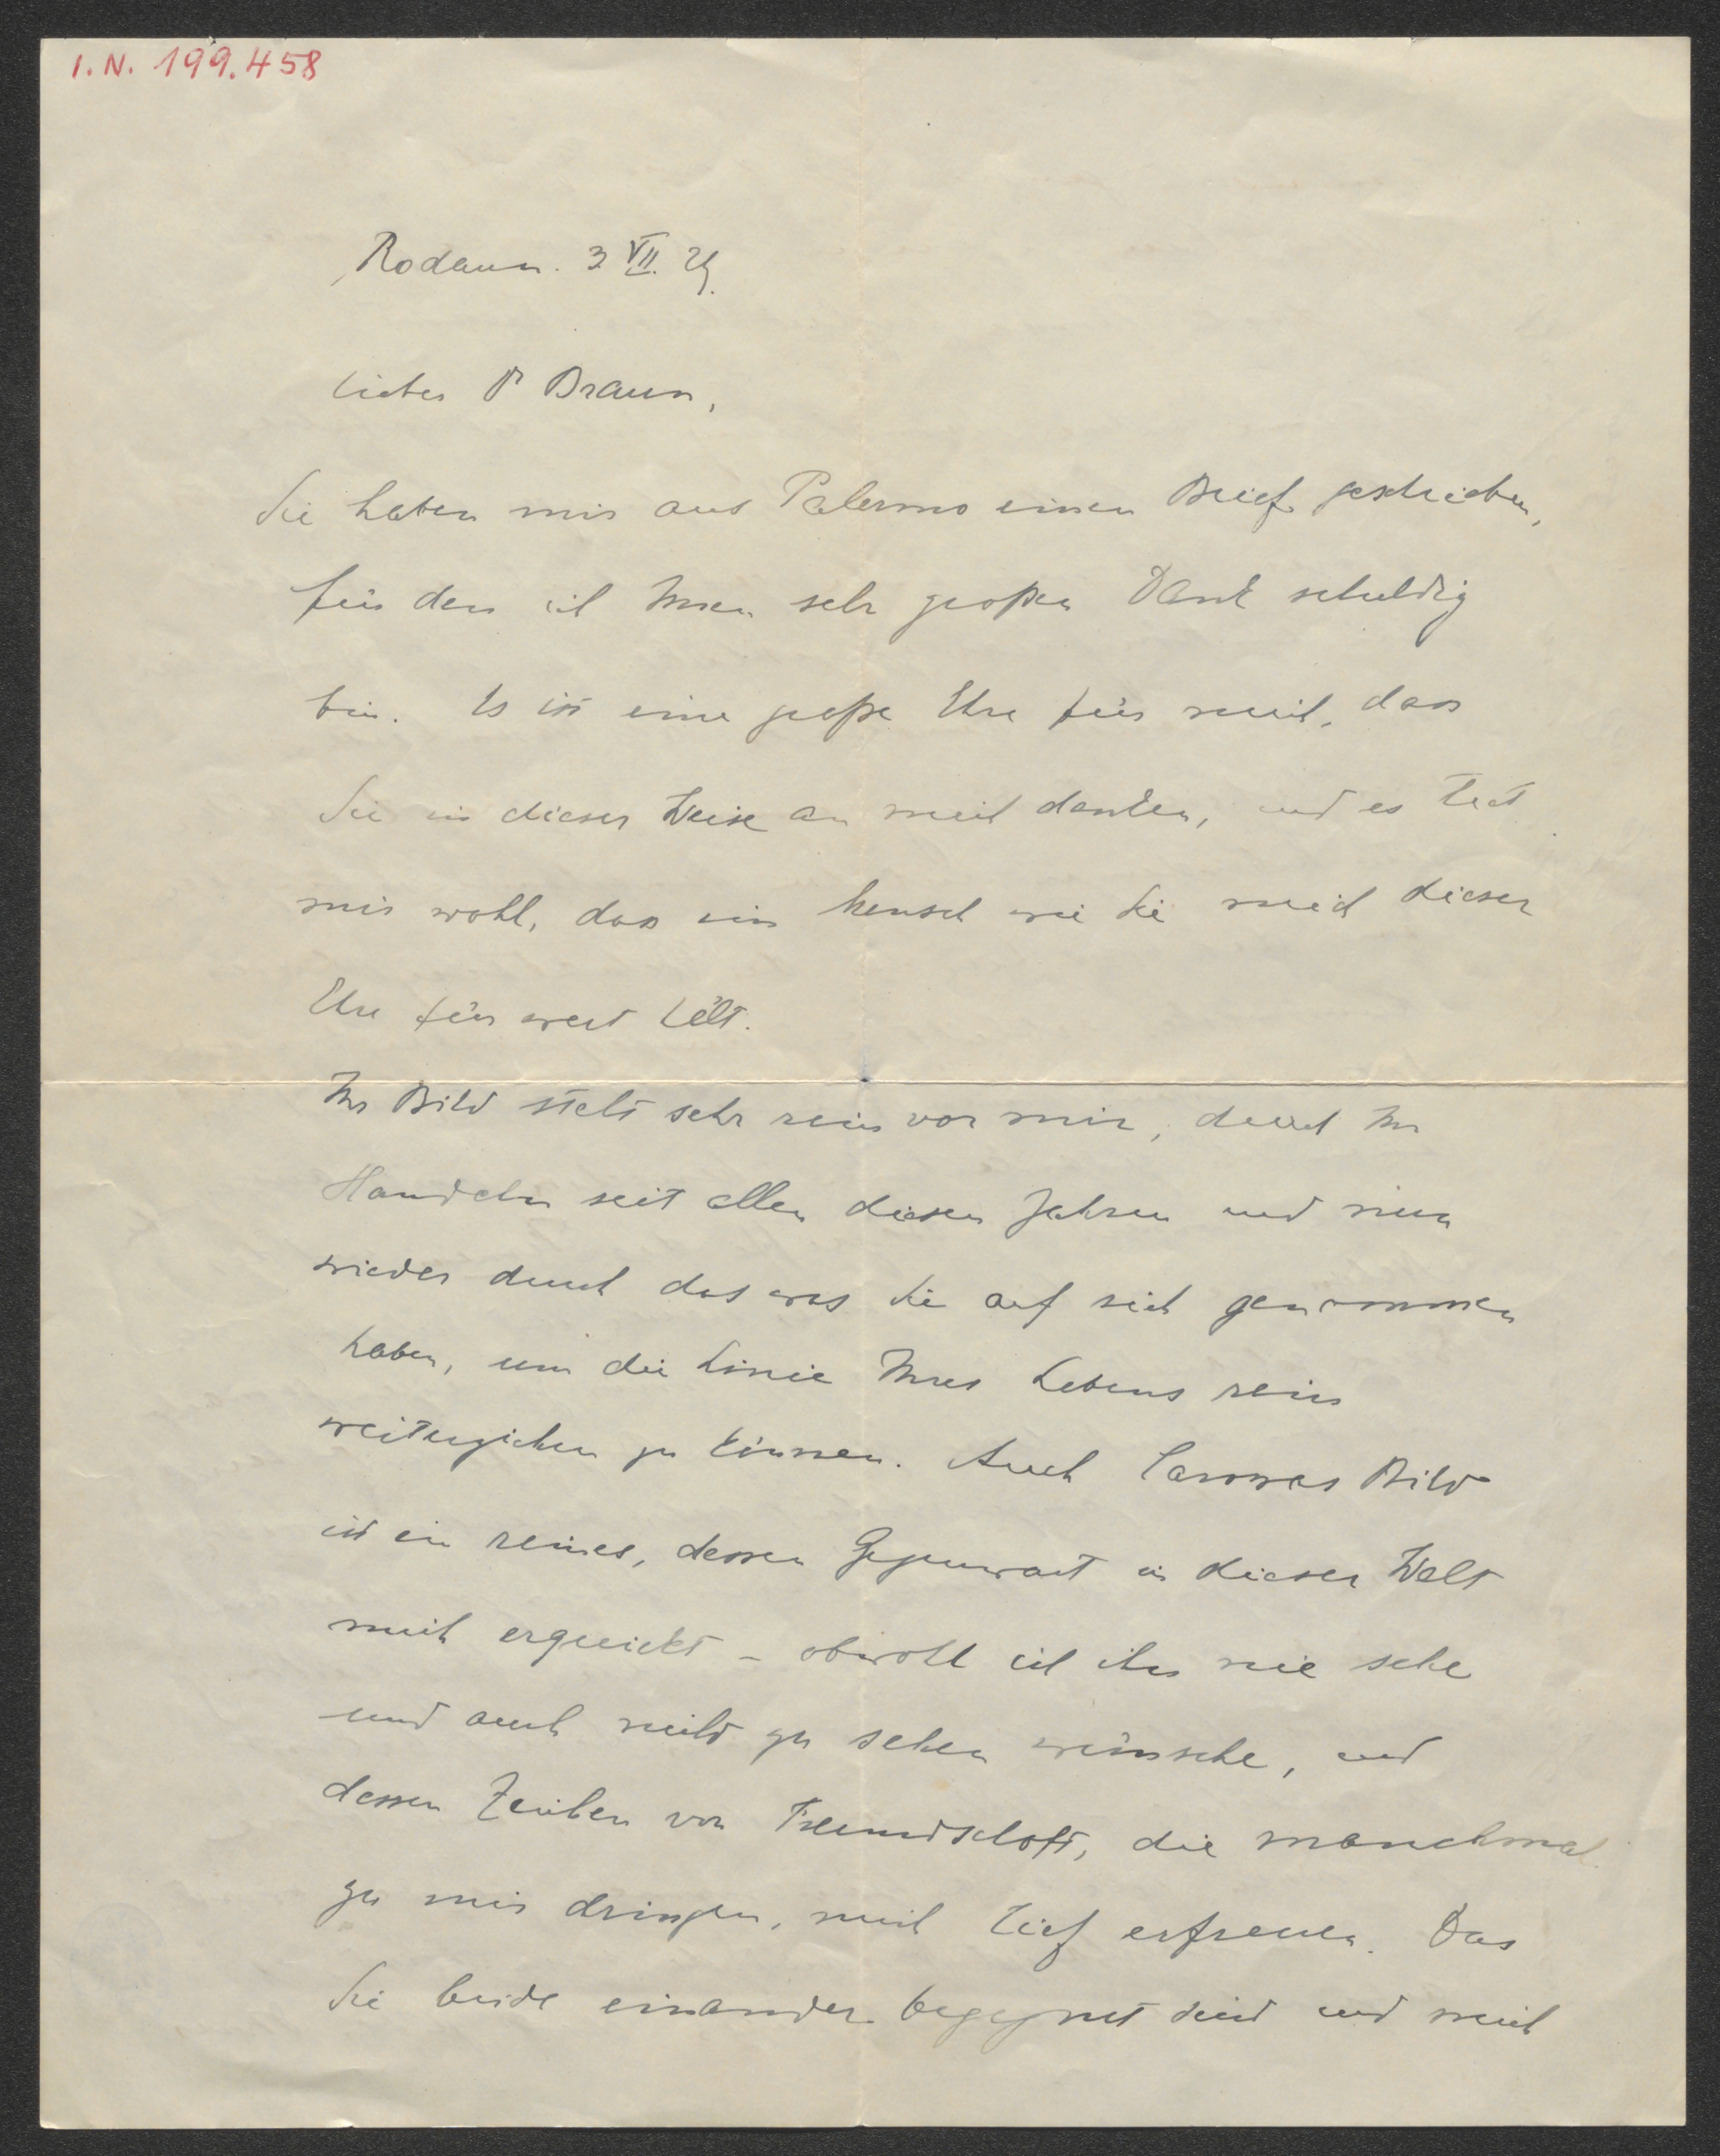 I.N. 199.458
Rodaun. 3 VII. 29.
Lieber Dr Braun,
Sie haben mir aus Palermo einen Brief geschrieben,
für den ich Ihnen sehr großen Dank schuldig
bin. Es ist eine große Ehre für mich, dass
Sie in dieser Weise an mich denken, und es thut
mir wohl, dass ein Mensch wie Sie mich dieser
Ehre für wert hält.
Ihr Bild steht sehr rein vor mir, durch Ihr
Handeln seit allen diesen Jahren und nun
wieder durch das was Sie auf sich genommen
haben, um die Linie Ihres Lebens rein
weiterziehen zu können. Auch Carossas Bild
ist ein reines, dessen Gegenwart in dieser Welt
mich erquickt – obwohl ich ihn nie sehe
und auch nicht zu sehen wünsche, und
dessen Zeichen von Freundschaft, die manchmal
zu mir dringen, mich tief erfreuen. Das
Sie beide einander begegnet sind und mich